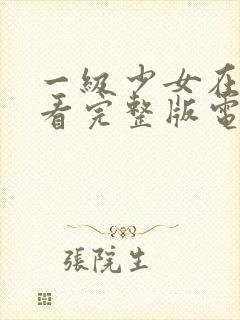 一級少女在
看完整版電
張院生